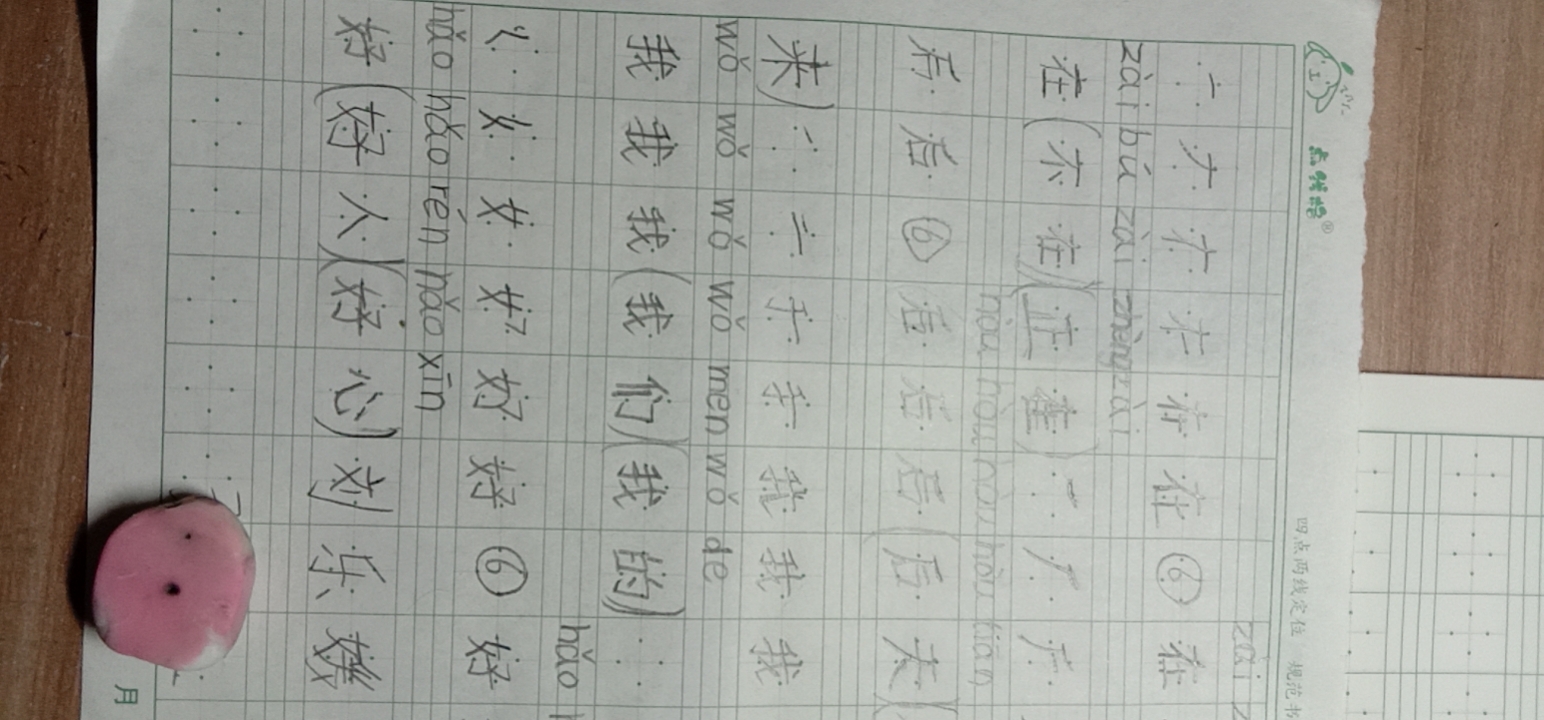 点线格®
四点两线定位 规范书
zài z
一 ナ 才 才 在 在 ⑥ 在
zài bú zài zhèngzài
在(不在)(正在)一 厂 厂
hòu hòu hòu hòu tiān
后 后 ⑥ 后 后 后(后天)(
来)一 二 于 手 我 我 我
wǒ wǒ wǒ wǒ men wǒ de
我 我 我(我们)(我的)
hǎo
く 女 女 好 好 好 ⑥ 好
hǎo hǎo rén hǎo xīn
好(好人)(好心)刘 乐
月